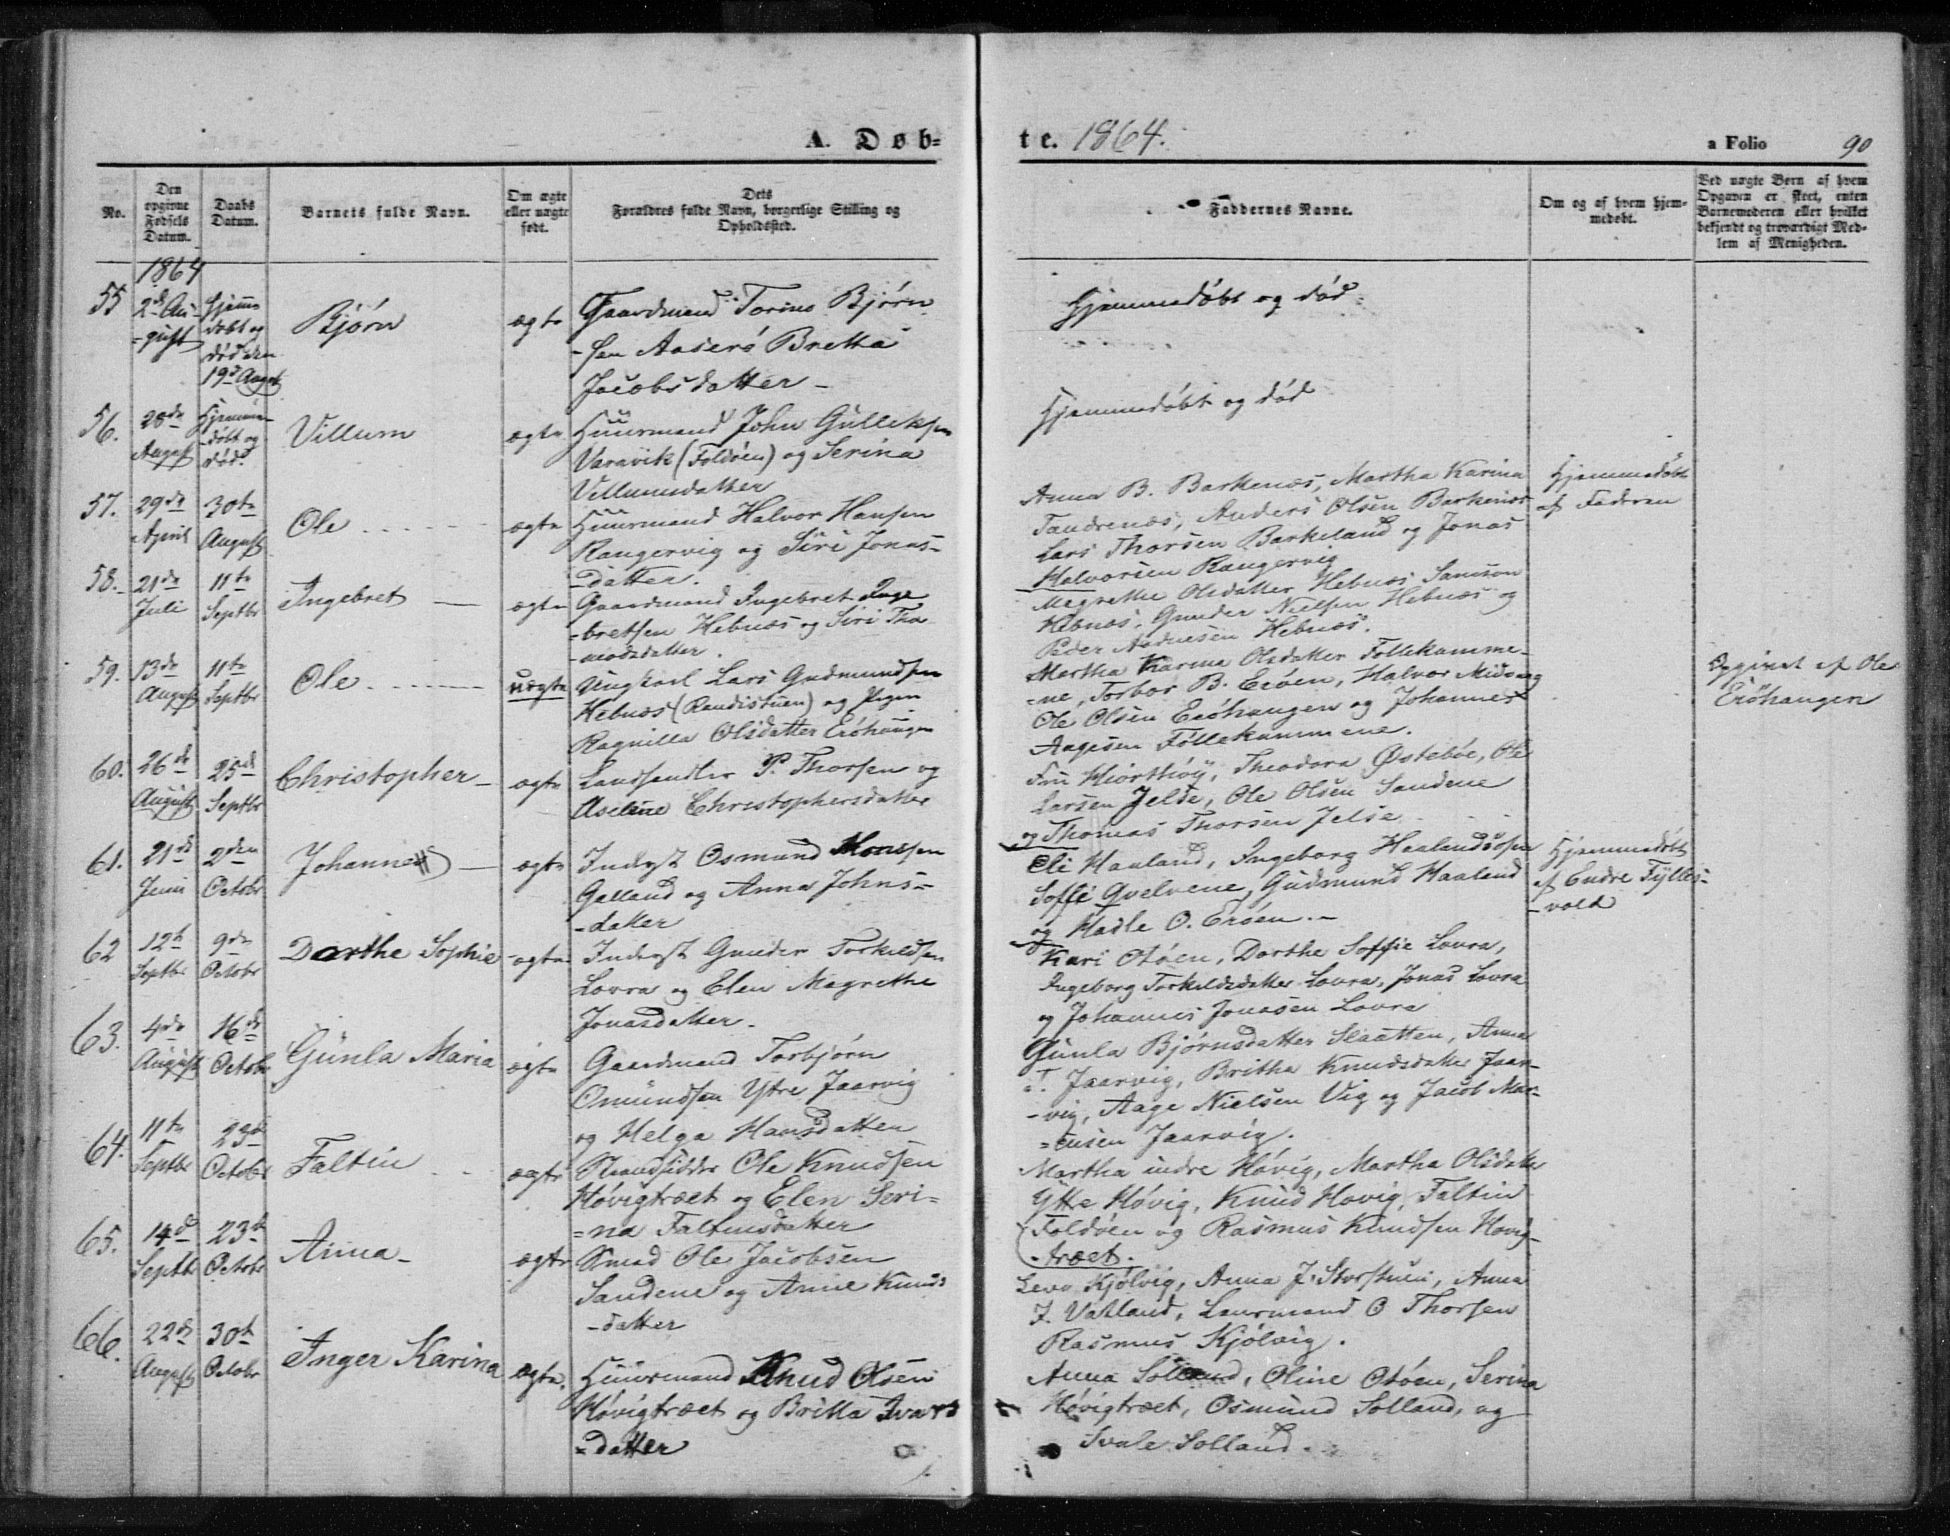 A. Døb-
te. 1864.
a Folio 90
No.
Den opgivne Fødsels Datum.
Daabs Datum.
Barnets fulde Navn.
Om ægte eller uægte født.
Dets Forældres fulde Navn, borgerlige Stilling og Opholdssted.
Faddernes Navne.
Om og af hvem hjemmedøbt.
Ved uægte Børn af hvem Opgaven er skeet, enten Barnemoderen eller hvilket bekjendt og troværdigt Medlem af Menigheden.
1864
55
2de Au-
-gust
Hjemme
døbt og
død den
19de August
Bjørn
ægte
Gaardmand Torius Bjørn
-sen Aaserø Bretta
Jacobsdatter -
Hjemmedøbt og død
56.
28de
August
Hjemme-
døbt og
død.
Villum
ægte
Huusmand John Gulleksen
Varavik (Foldøen) og Serina
Villumsdatter
Hjemmedøbt og død
57.
29de
April
30te
August
Ole
ægte
Huusmand Halvor Hansen
Rangervig og Siri Jonas-
-datter.
Anna B. Barkenæs, Martha Karina
Tandrenæs, Anders Olsen Barkenæs
Lars Thorsen Barkeland og Jonas
Halvorsen Rangervig
Hjemmedøbt
af Faderen
58.
21de
Juli
11te
Septbr
Ingebret
ægte
Gaardmand Ingebret Inge
-bretsen Hebnæs og Siri Tho
-modsdatter.
Megrethe Olsdatter Hebnæs Samson
Hebnæs, Gunder Nielsen Hebnæs og
Peder Aadnesen Hebnæs.
59.
13de
August
11te
Septbr
Ole
uægte
Ungkarl Lars Gudmundsen
Hebnæs (Randistuen) og Pigen
Ragnilla Olsdatter Erøhaugen
Martha Karina Olsdatter Follekamme-
-ne, Torbor B. Erøen, Halvor Midvaag
Ole Olsen Erøhaugen og Johannes
Aagesen Føllekammene.
Opgivet af Ole
Erøhaugen
60.
26de
August
25de
Septbr
Christopher
ægte
Landhandler P. Thorsen og
Aselene Christophersdatter
Fru Hiorthøy, Theodora Østebøe, Ole
Larsen Jelse, Ole Olsen Sandene
og Thomas Thorsen Jelse
61.
21de
Juni
2den
Octobr
Johannes
ægte
Inderst Osmund Monsen
Galland og Anna Johns-
-datter
Eli Haaland, Ingeborg Haalandsosen
Soffi Qvelvene, Gudmund Haaland
og Hadle O. Erøen.
Hjemmedøbt
af Endre Fylles-
-vold
62
12te
Septbr
9de
Octobr
Dorthe Sophie
ægte
Inderst Gunder Torkildsen
Lovra og Elen Magrethe
Jonasdatter.
Kari Otøen, Dorthe Soffie Lovra,
Ingeborg Torkildsdatter Lovra, Jonas Lovra
og Johannes Jonasen Lovra
63.
4de
August
16de
Octobr
Gunla Maria
ægte
Gaardmand Torbjørn
Omundsen Ytre Jaarvig
og Helga Hansdatter
Gunla Bjørnsdatter Slaatten, Anna
T. Jaarvig, Britha Knudsdatter Jaar-
-vig, Aage Nielsen Vig og Jacob Mar-
-ensen Jaarvig.
64.
11te
Septbr
23de
Octobr
Faltin
ægte
Strandsidder Ole Knudsen
Høvigtræet og Elen Seri-
-na Faltinsdatter
Martha indre Høvig, Martha Olsdatter
Ytre Høvig, Knud Høvig, Faltin
Foldøen og Rasmus Knudsen Høvig-
-træet.
65.
14de
Septbr
23de
Octobr
Anna
ægte
Smed Ole Jacobsen
Sandene og Anne Knuds
-datter
Kjølvig, Anna J. Storstuen, Anna
J. Vatland, Lensmand O Thorsen
Rasmus Kjølvig.
66.
22de
August
30te
Octobr
Inger Karina
ægte.
Huusmand Knud Olsen
Høvigtræet og Britta Ivars
-datter
Anna Solland, Oline Otøen, Serina
Høvigtræet, Osmund Solland, og
Svale Solland.